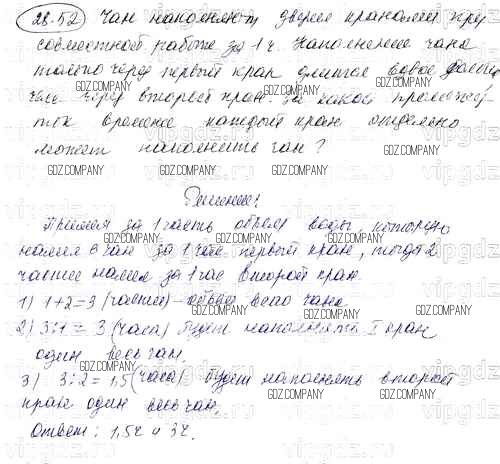 28.52 Чан наполняют двумя кранами при
совместной работе за 1 ч. Наполнение чана
только через первый кран длится вдвое больше
чем через второй кран. За какой промежу-
ток времени каждый кран отдельно
может наполнить чан?
Решение:
Примем за 1 часть объем воды, которую
налил в чан за 1 час первый кран, тогда 2
части налил за 1 час второй кран.
1) 1+2=3 (части) - объем всего чана
2) 3:1=3 (часа) будет наполнять I кран
один весь чан.
3) 3:2=1,5 (часа) будет наполнять второй
кран один весь чан.
Ответ: 1,5ч и 3ч.
GDZ.COMPANY
vipgdz.ru